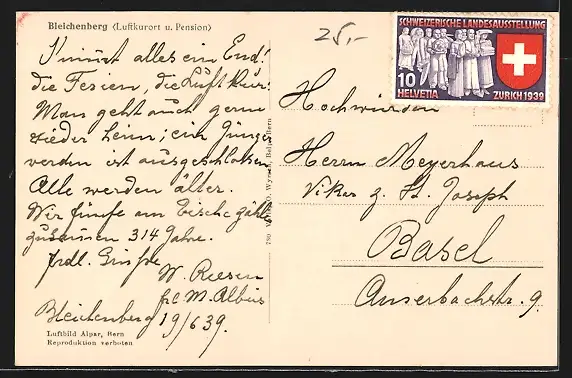 Bleichenberg (Luftkurort u. Pension)
Nimmt alles ein End!
die Ferien, die Luftkur!
Man geht auch gern
wieder heim; ein Jünger
werden ist ausgeschlossen
Alle werden älter.
Wir fünfe am Tische zähl
zusammen 314 Jahre.
frdl. Grüsse
W. Riesen
M. Albus
Bleichenberg 19/6 39.
Luftbild Alpar, Bern
Reproduktion verboten
790 Verlag O. Wyss, Belp, Bern
25,-
SCHWEIZERISCHE LANDESAUSSTELLUNG
10
HELVETIA
ZÜRICH 1939
Hochwürden
Herrn Meyerhaus
Vikar z. St. Joseph
Basel
Amerbachstr. 9.